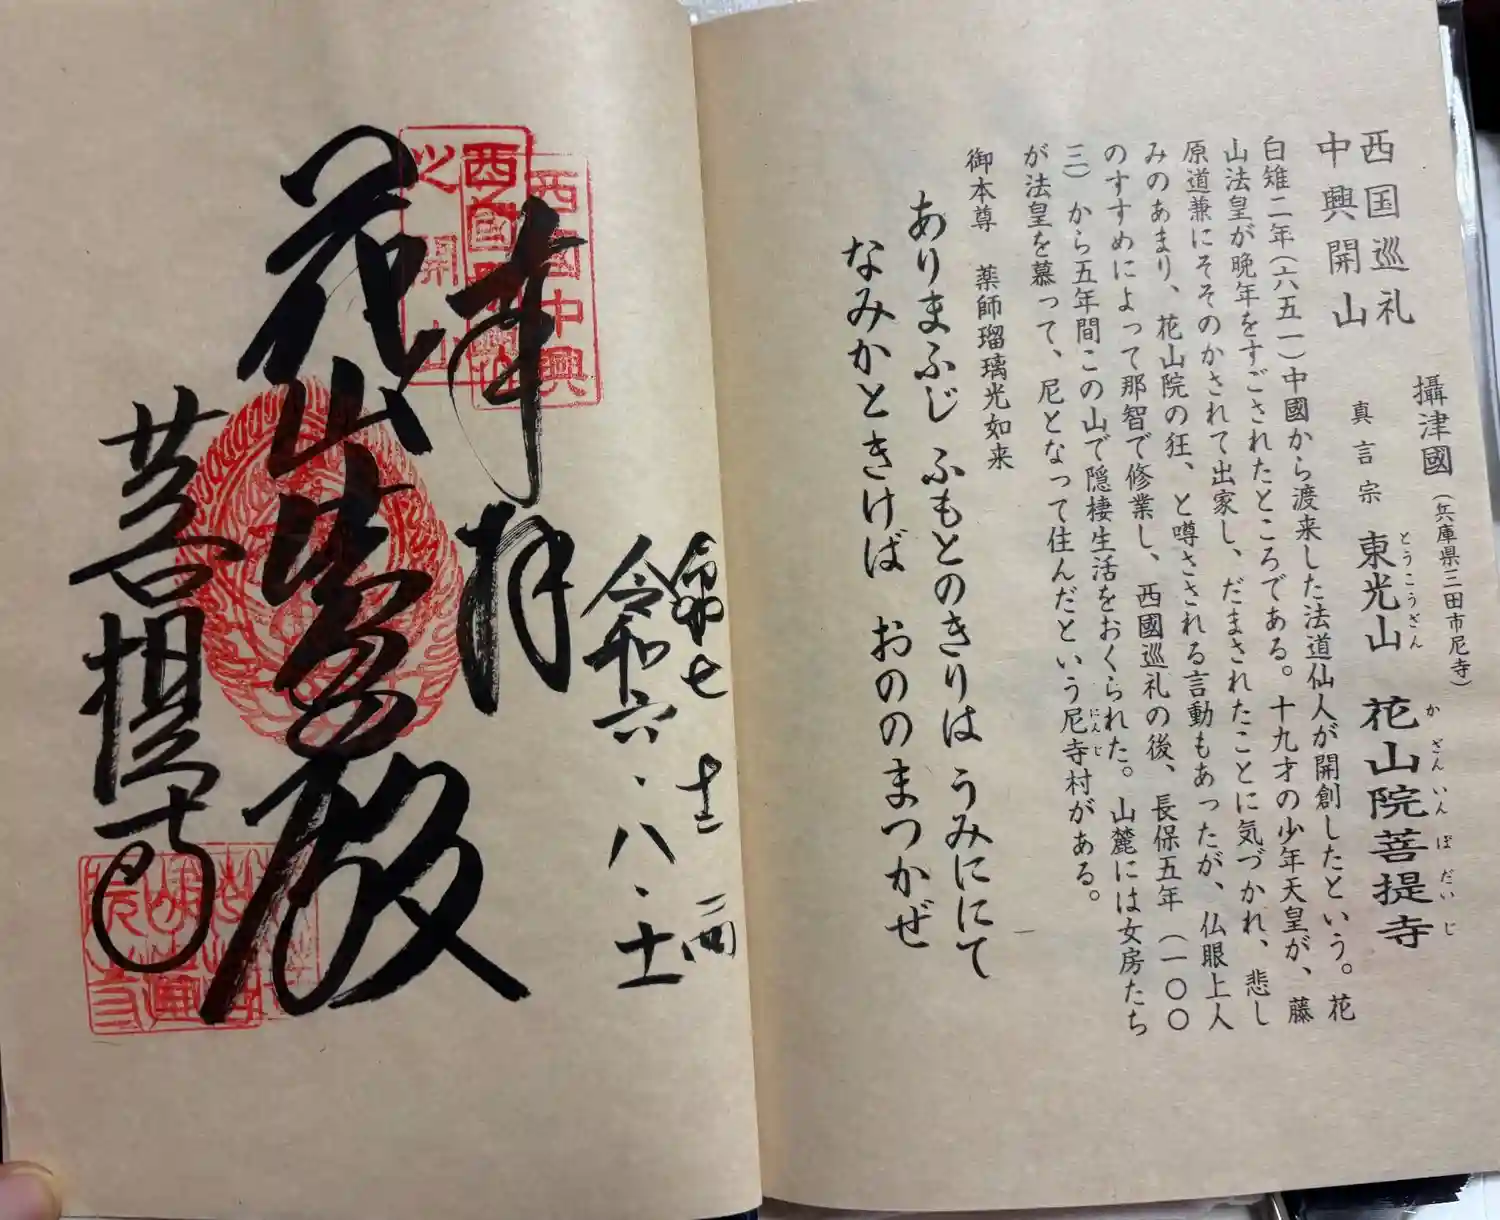 西国巡礼
中興開山
攝津國（兵庫県三田市尼寺）
真言宗 東光山 花山院菩提寺
とうこうざん かざんいんぼだいじ
白雉二年（六五一）中國から渡来した法道仙人が開創したという。花
山法皇が晩年をすごされたところである。十九才の少年天皇が、藤
原道兼にそそのかされて出家し、だまされたことに気づかれ、悲し
みのあまり、花山院の狂、と噂される言動もあったが、仏眼上人
のすすめによって那智で修業し、西國巡礼の後、長保五年（一〇〇
三）から五年間この山で隠棲生活をおくられた。山麓には女房たち
が法皇を慕って、尼となって住んだという尼寺村がある。
にんじ
御本尊 薬師瑠璃光如来
ありまふじ ふもとのきりは うみににて
なみかときけば おののまつかぜ
令和七 十二
令和六・八・十一
奉拝
西國中興
開山
花山法皇殿
菩提寺